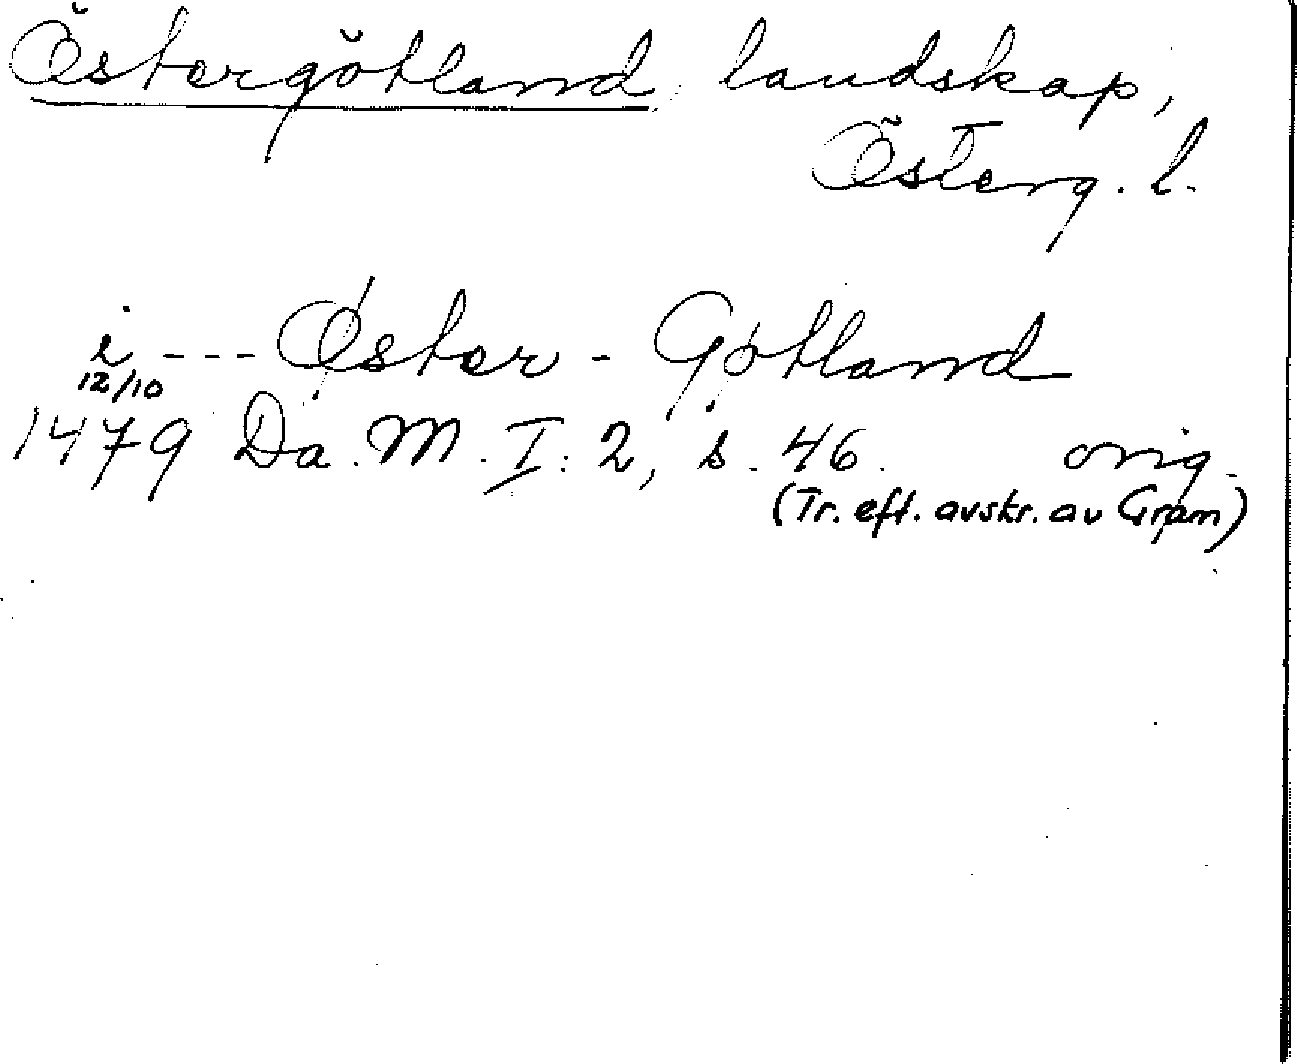 Östergötland, landskap,
Österg. l.
i --- Øster - Gøtland
12/10
1479 Da. M. I: 2, s. 46. orig.
(Tr. eft. avskr. av Gram)